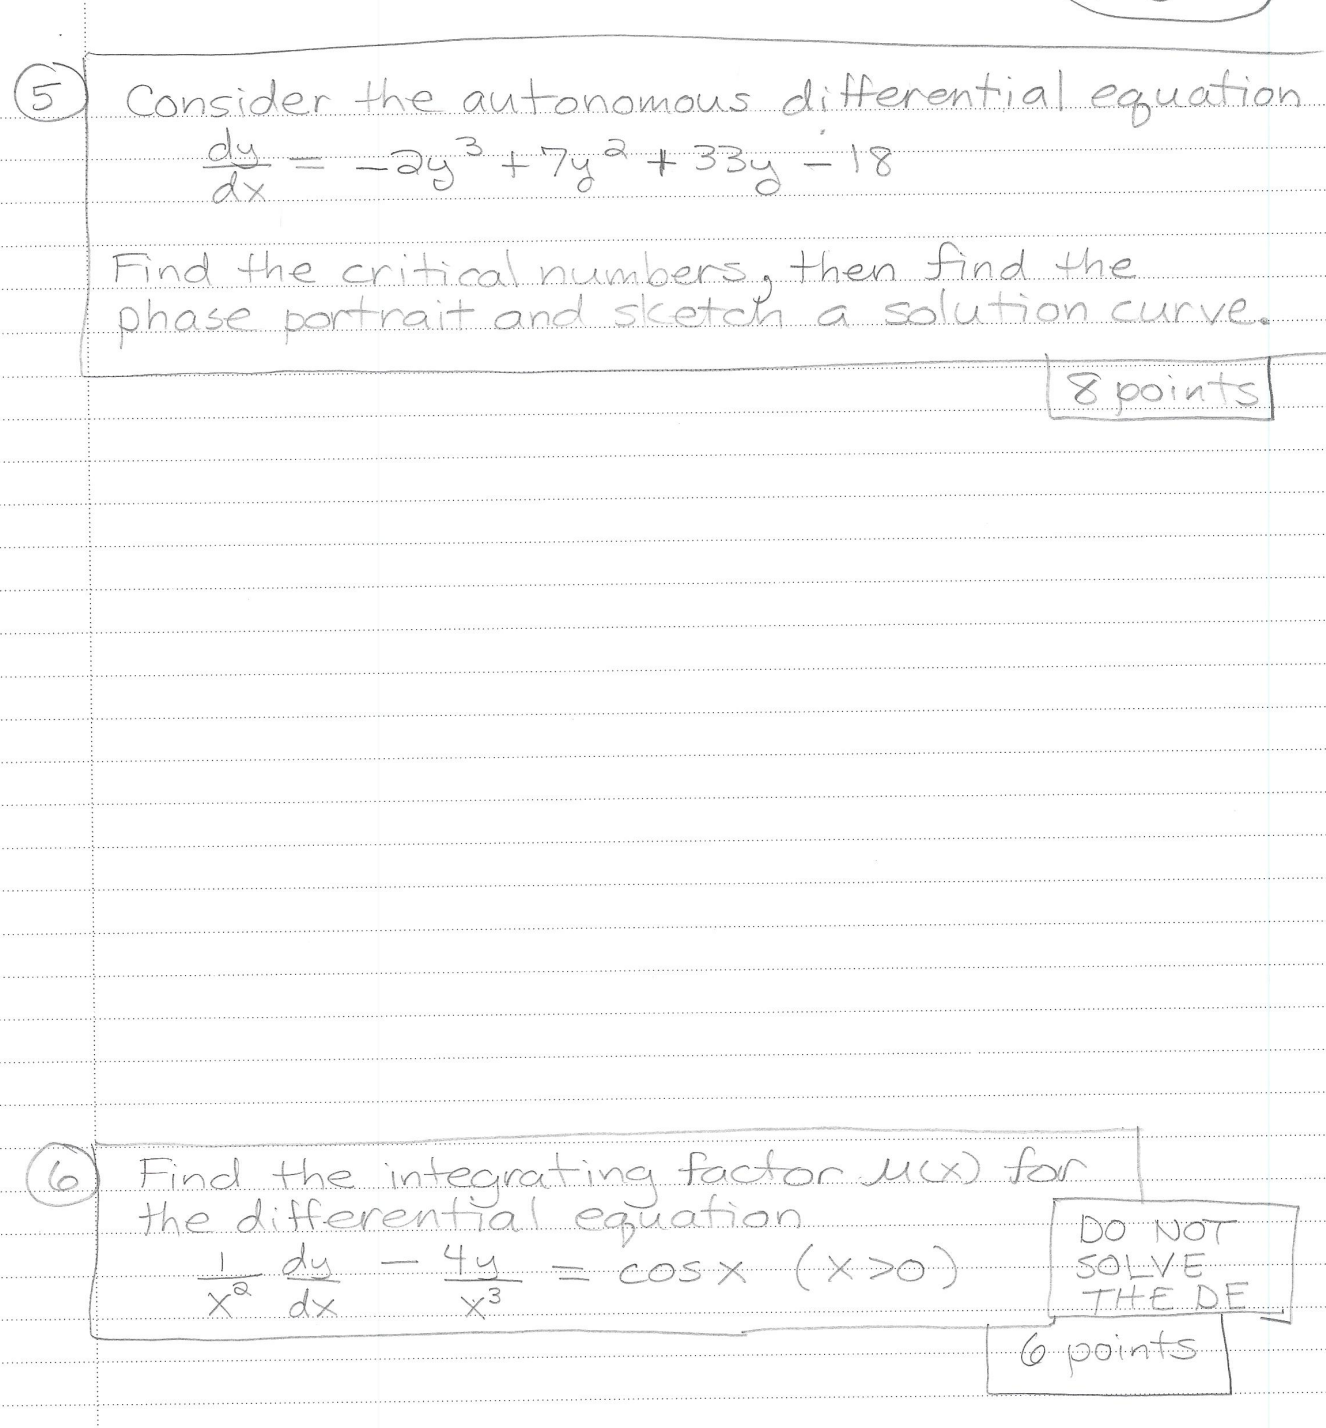 5 Consider the autonomous differential equation
dy/dx = -2y³ + 7y² + 33y - 18
Find the critical numbers, then find the
phase portrait and sketch a solution curve.
8 points
6 Find the integrating factor μ(x) for
the differential equation
1/x² dy/dx - 4y/x³ = cos x (x>0)
DO NOT
SOLVE
THE DE
6 points